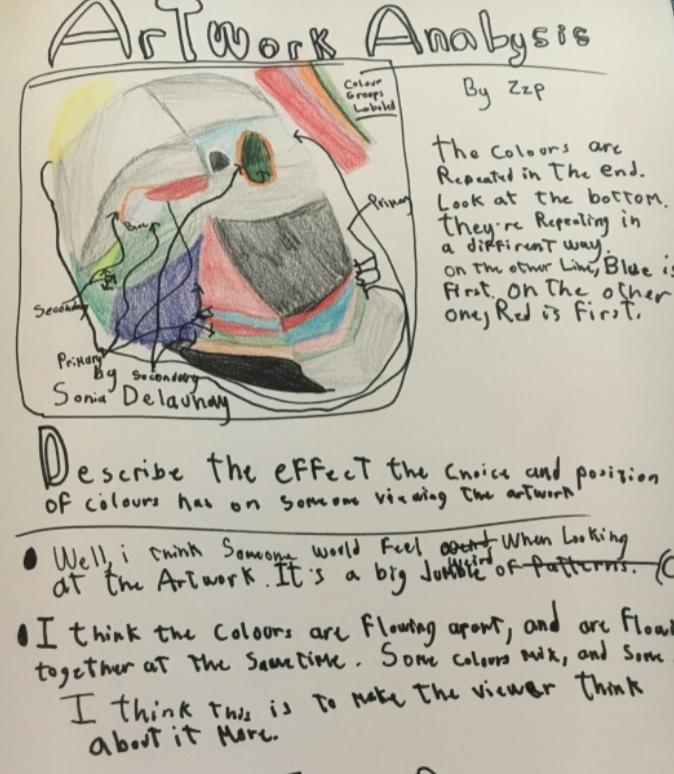 ArTwork Analysis
By Zzp
Colour
Groups
Labeled
The Colours are
Repeated in The end.
Look at the bottom.
they're Repeating in
a different way.
on the other Line, Blue is
First. On the other
one, Red is First.
Primary
Secondary
Primary
Secondary
by
Sonia Delaunay
Describe the effect the choice and position
of colours has on someone viewing the artwork
Well, i think Someone would Feel weird When Looking
at the Artwork. It's a big Jumble of Patterns.
I think the Colours are Flowing apart, and are Flow
together at The Same time. Some Colours Mix, and Some
I think This is To Make The viewer Think
about it More.